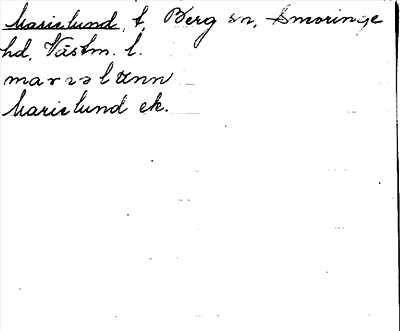 Marielund, t, Berg sn, Snevringe
hd, Västm. l.
Marielund ek.